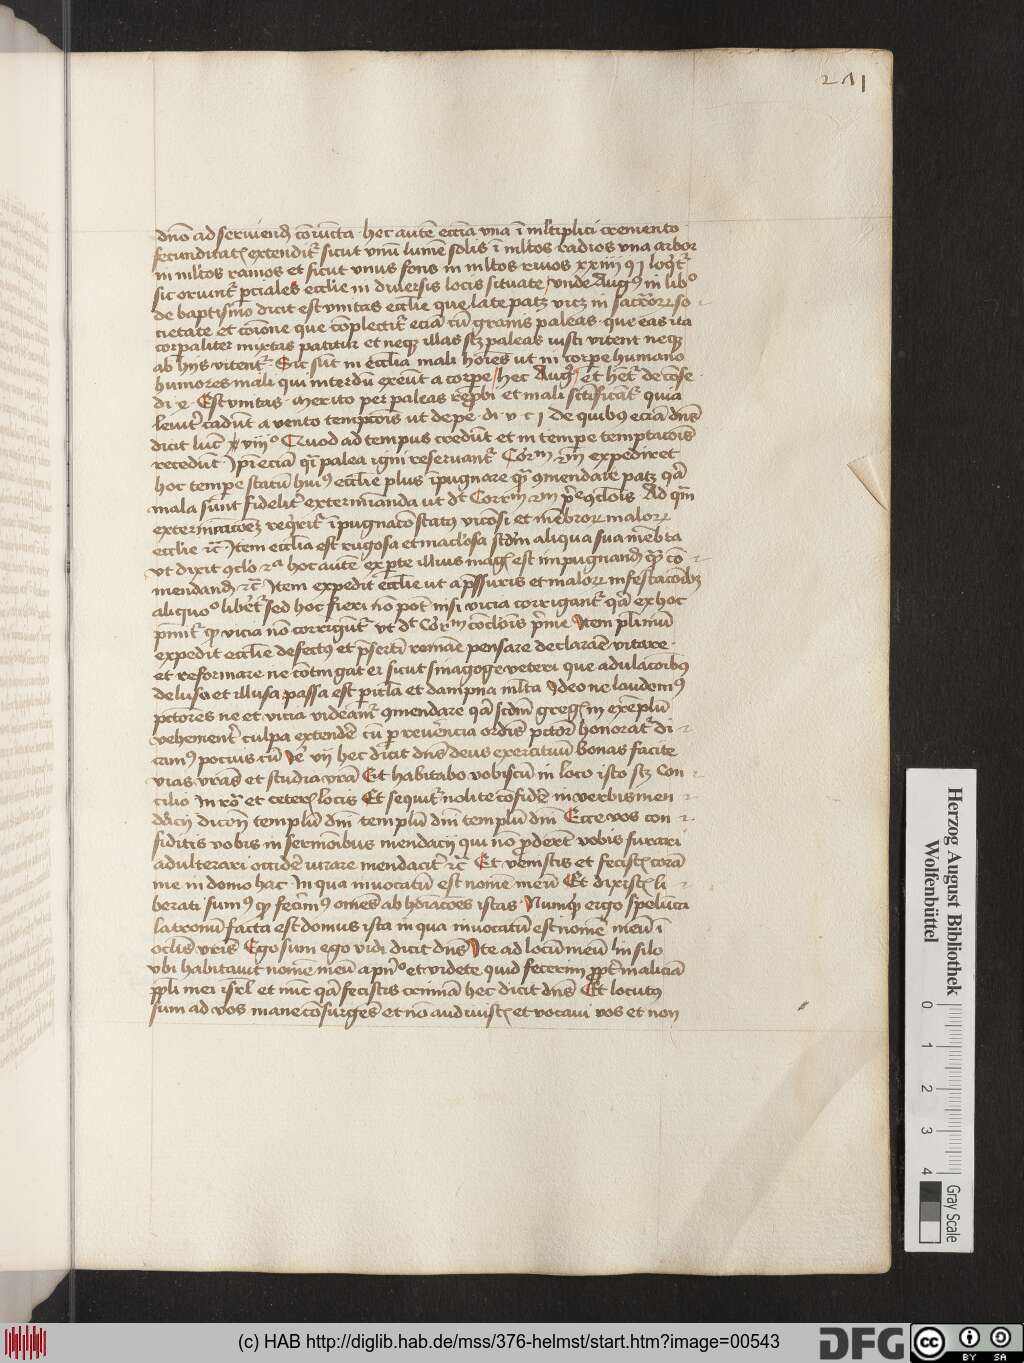 271
dnō ad seruiend̄ cōiūcta · hec autē ecc̄ia vna ī ml̄tiplici cremento
fecunditat extendit sicut vnū lumē solis ī ml̄tos radios vna arbor
in ml̄tos ramos et sicut vnus fons in ml̄tos riuos xxiiii q i loq̄r
sic oriunt p̄ciales eccl̄ie in diuersis locis situate / vnde Aug9 in libº
de baptismo dicit est vnitas eccl̄ie que late patz vicz in sacror so
cietate et cōione que cōplectit eciā cū granis paleas · que eas ita
corpaliter mixtas patitur et neqz illas scz paleas iusti vitent neqz
ab hijs vitent Sic sūt in eccl̄ia mali hōies ut in corpe humano
humores mali qui interdū exeūt a corpe / hec Aug9 et het de cōse
di · e · Est vnitas · Merito per paleas rep̄bi et mali sc̄ificāt quia
leuit cadūt a vento temptcōis ut depe · di · v · c i De quibus eciā dns̄
dicit luc̄ viiiº Quod ad tempus credūt et in tempe temptacōis
recedūt Ip̄i eciā qī palea igni reseruant Corm rm̄ expediret
hoc tempe statum hui9 eccl̄ie plus īpugnare q̄ 9mendare patz qā
mala sunt fidelit exterminanda ut dt Corrm rm p̄e 9cl̄ois Ad qm̄
exterminacōez reqrit īpugnacō status vicosi et mēbror malor
eccl̄ie rc̄ Item eccl̄ia est rugosa et maclosa scdm aliqua sua mēbra
vt dixit 9clo rª hoc autē ex pte illius mag est impugnand̄ q̄ cō
mendand̄ rc̄ Item expedit eccl̄ie ut a p̄ssuris et malor infestacōibz
aliquoº liberet Sed hoc fieri nō pot nisi vicia corrigant qā ex hoc
pm̄it q vicia nō corrigūt vt dt Corm cōcl̄ois p̄me Item plimū
expedit eccl̄ie defectus et p̄serti romāe pensare declarāe vitare
et reformare ne cōtingat ei sicut sinagoge veteri que adulacōibz
delusa et illusa passa est picl̄a et dampna ml̄ta Ideo ne laudem9
pctores ne et vicia videam 9mendare qā scdm greg in exēplū
vehement culpa extendē cū p reuerēncia ordis pctor honorat di
cam9 pocius cū Ie vij hec dicit dns̄ deus exercituū bonas facite
vias vrās et studia vrā Et habitabo vobiscū in loco isto scz con
cilio In ro et ceteris locis Et sequit nolite cōfidē in verbis men
dacij dicen templū dni templū dni templū dni Ecce vos con
fiditis vobis in sermōibus mendacij qui nō pderēt vobis furari
adulterari occidē iurare mendacit rc̄ Et venistis et fecistis corā
me in domo hac · In qua inuocatū est nomē meū Et dixistis li
berati sum9 q fecim9 om̄es abhoiacōes istas · Numqd ergo spelūca
latronū facta est domus ista in qua inuocatū est nomē meū ī
oclis vris Ego sum ego vidi dicit dns̄ Ite ad locū meū in silo
vbi habitauit nomē meū a pnº et videte quid fecerim ppt maliciā
ppli mei isrl et nūc qā fecistis om̄ia hec dicit dns̄ Et locutus
sum ad vos mane cōsurges et nō audiuistis et vocaui vos et non
Herzog August Bibliothek
Wolfenbüttel
0 1 2 3 4
Gray Scale
(c) HAB http://diglib.hab.de/mss/376-helmst/start.htm?image=00543
DFG
cc BY SA